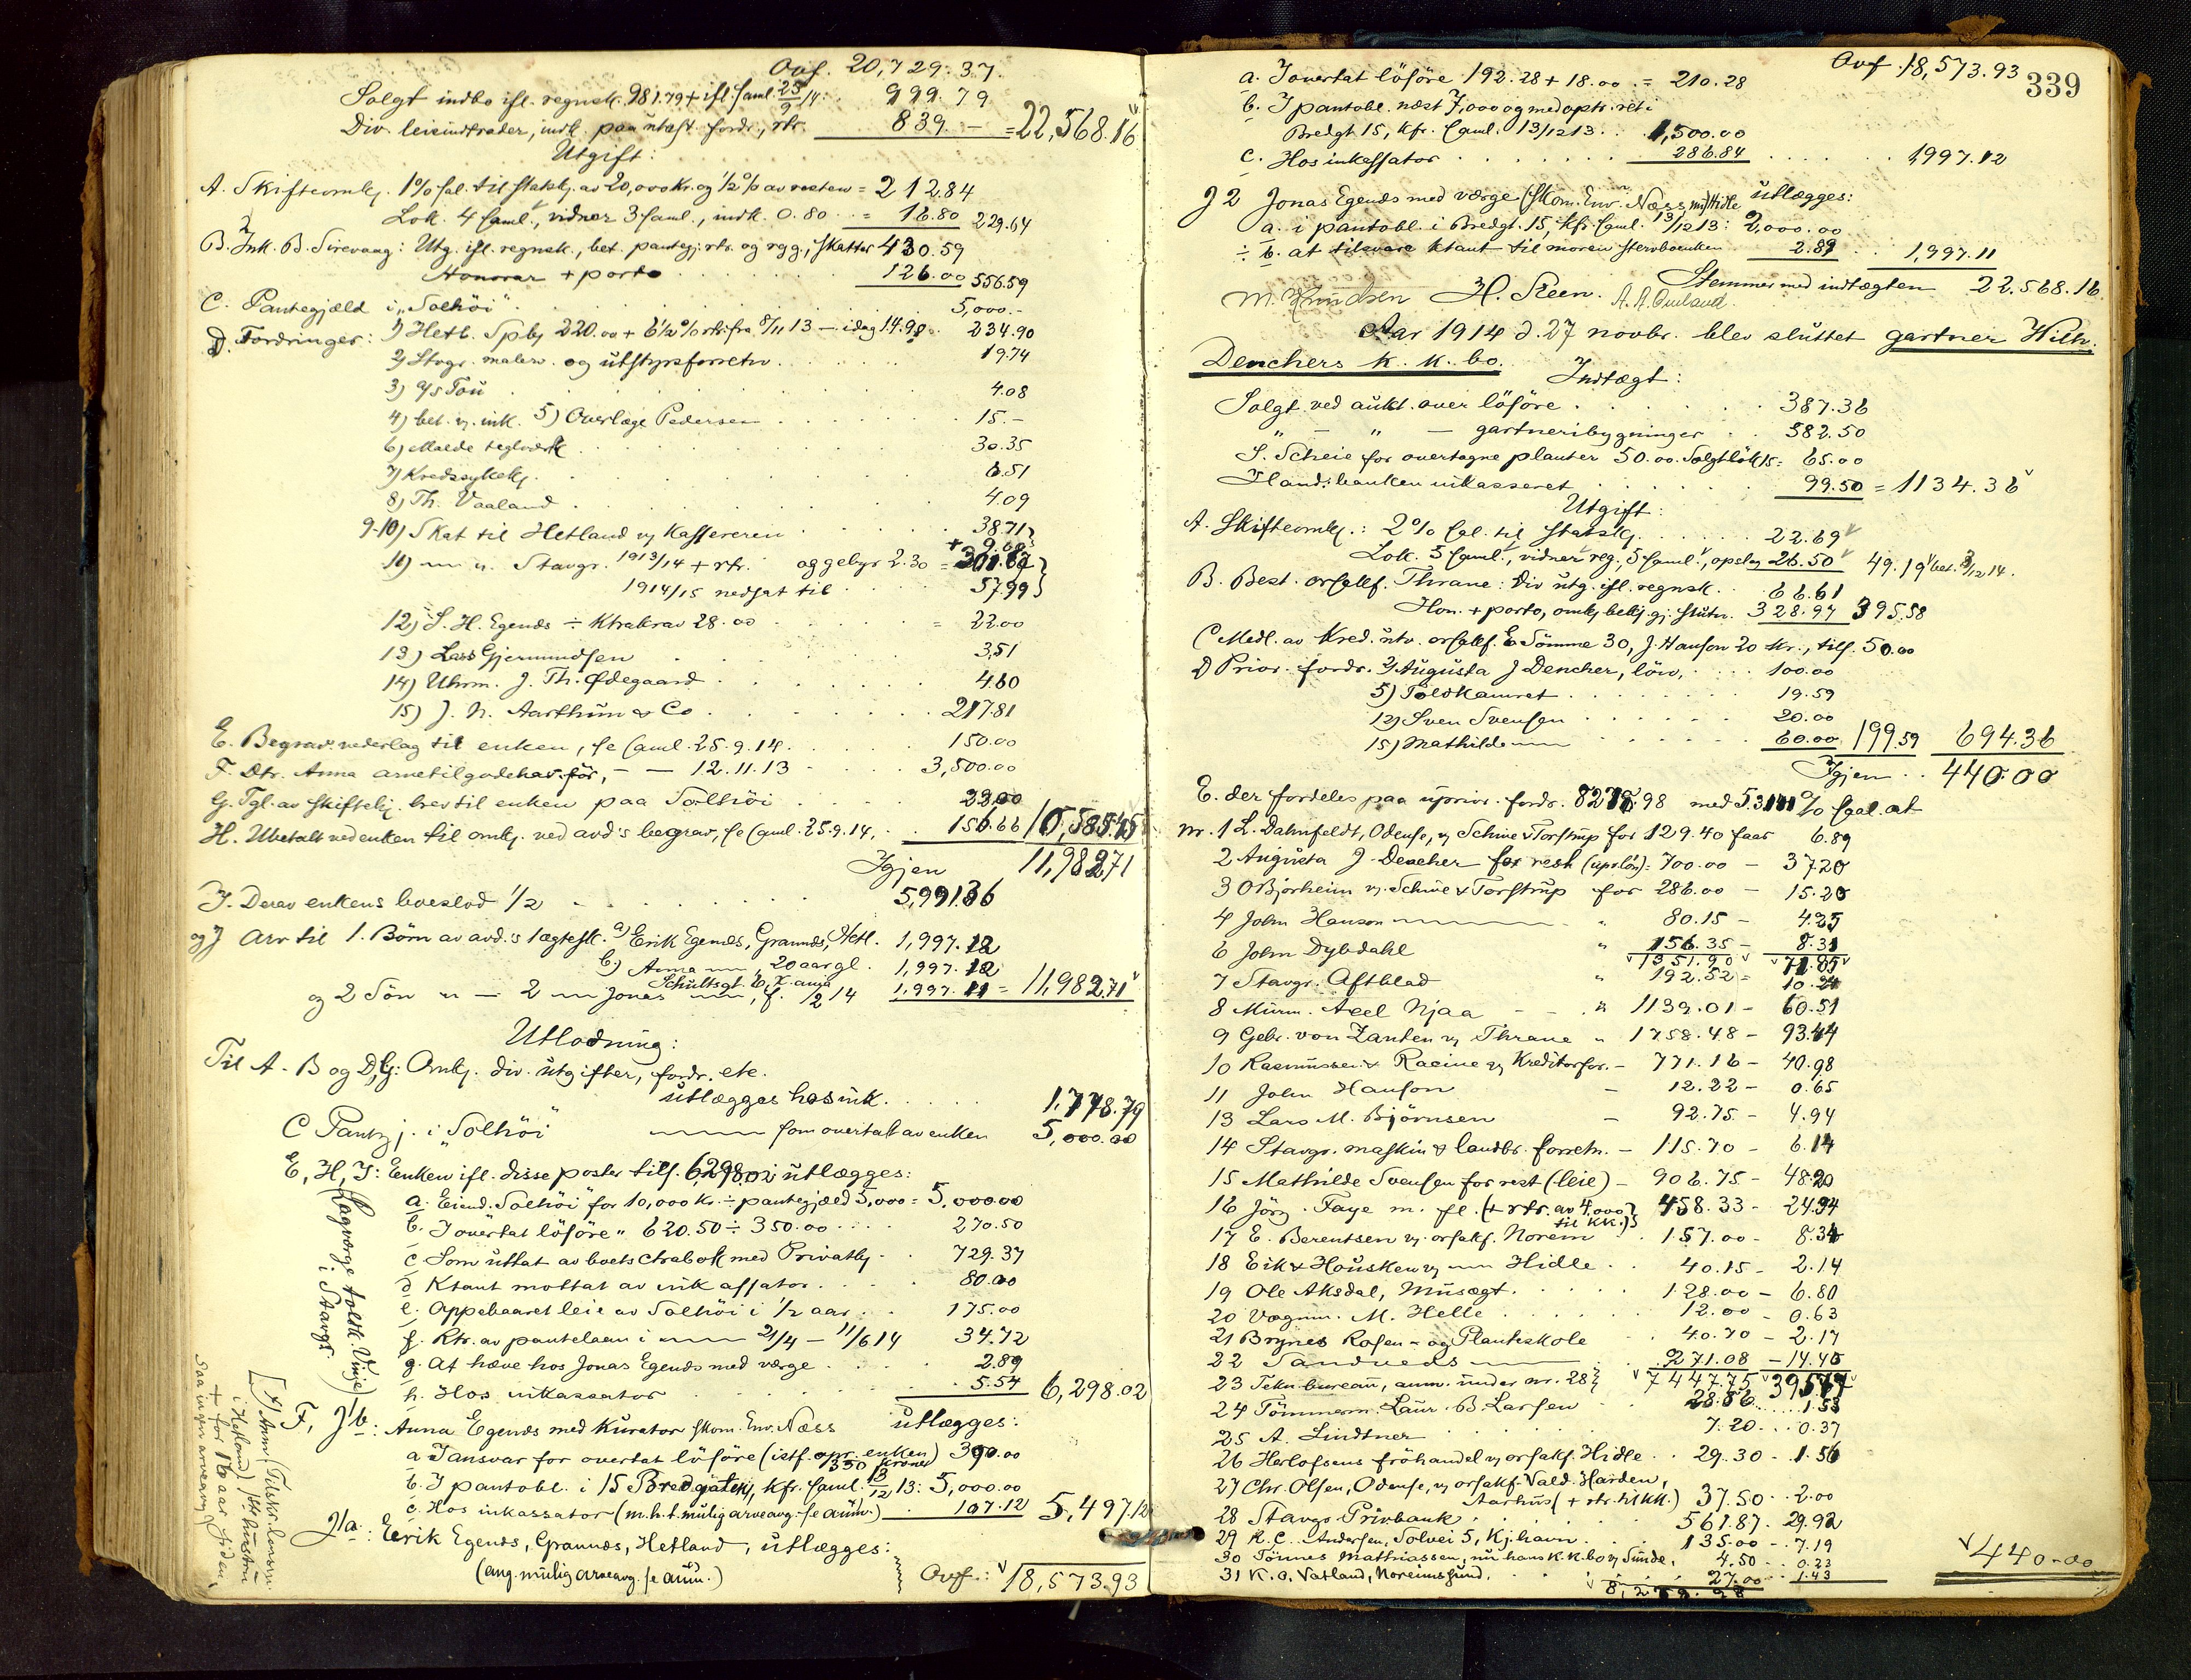 Ovf. 20,729.37.
Solgt indbo ifl. regnsk. 981.79 + ifl. saml. 25/9 14: 999.79
Div. leieindtægter, indk. paa utest. fordr., rtr. 839.— = 22,568.16
Utgift:
A. Skifteomk. 1% sal. til statsk. av 20,000 kr. og ½% av resten = 212.84
Lok. 4 saml., vidner 3 saml., indk. 0.80 = 16.80 229.64
B. Ink. B. Sirevaag: Utg. ifl. regnsk., bet. pantegj. rtr. og rgg., skatter 430.59
Honorar + porto 126.00 556.59
C. Pantegjæld i "Solhöi" 5,000.-
D. Fordringer: 1) Hetl. Spbk 220.00 + 6½% rtr. fra 8/11 13 — idag 14.90 = 234.90
2) Stvgr. malerv. og utstyrsforretn. 19.74
3) A/S Tou 4.08
4) bet. v. ink. 5) Overlæge Pedersen 15.-
6) Malde teglverk 30.35
7) Kredssykek. 6.51
8) Th. Vaaland 4.09
9-10) Skat til Hetland v. Kassereren 38.71
+ 9.68
11) — " Stavgr. 1913/14 + rtr. og gebyr 2.30 = 301.62
1914/15 nedsat til 57.99
12) S. H. Egends ÷ Ktrakrav 28.00 = 22.00
13) Lars Gjermundsen 3.51
14) Uhrm. J. Th. Ødegaard 4.60
15) J. N. Aarthun & Co 217.81
E. Begrav. vederlag til enken, se saml. 25.9.14. 150.00
F. Dtr. Anna arvetilgodehav. før, — — 12.11.13 3,500.00
G. Tgl. av skiftebj. brev til enken paa Solhöi 22.00
H. Utbetalt ved enken til omk. ved avd's begrav, se saml. 25.9.14, 156.66 10,585.45
Igjen 11,982.71
I. Derav enkens boeslod ½ 5,991.36
og J Arv til 1. Børn av avd.'s 1 ægtesk. a) Erik Egends, Grannes, Hetl. 1,997.12
b) Anna — " 20 aar gl. 1,997.12
Schultsgt. 6, X. anja
og 2 Sön " — 2 — Jonas —, f. 1/2 14 1,997.11 = 11,982.71
Utlodning:
Til A - B og D, G: Omk. div. utgifter, fordr. etc.
utlægges hos ink. 1,778.79
C Pantegj. i "Solhöi" —— som overtat av enken 5,000.00
E, H, I: Enken ifl. disse poster tils. 6,298.02 utlægges:
(Lagværge toldk. Vinje) i Stavgr.
a. Eiend. Solhöi for 10,000 kr. ÷ pantegjæld 5,000 = 5,000.00
b. I overtat löföre " 620.50 ÷ 350.00 270.50
c Som uttat av boets ctrabok med Privatbk. 729.37
d Ktant mottat av inkassator 80.00
e. Oppebaaret leie av Solhöi i ½ aar 175.00
f. Rtr. av pantelaan i —— 21/4 — 11/6 14 34.72
g. At hæve hos Jonas Egends med værge 2.89
h. Hos inkassator 5.54 6,298.02
F, J 1b: Anna Egends med Kurator skom. Enr. Næss utlægges:
a I ansvar for overtat löföre (istf. opr. enken) 390.00
350 kroner
b. I pantobl. i 15 Bredgaten, kfr. saml. 13/12 13: 5,000.00
c. Hos inkassator (m.h.t. mulig arveavg. se anm.) 107.12 5,497.12
J 1a: Erik Egends, Grannes, Hetland, utlægges:
(ang. mulig arveavg. se anm.)
Ovf.: 18,573.93
339
Ovf. 18,573.93
a. I overtat löföre 192.28 + 18.00 = 210.28
b. I pantobl. næst 7,000 og med optr. ret i
Bredgt 15, kfr. saml. 13/12 13 1,500.00
c. Hos inkassator 286.84 1997.12
J 2 Jonas Egends med værge (skom. Enr. Næss utlægges:
a. i pantobl. i Bredgt. 15, kfr. saml. 13/12 13: 2,000.00
÷ b. at tilsvare ktant til moren stervboenken 2.89 1,997.11
Stemmer med indtægten 22.568.16
M. Knudsen H. Steen.
Aar 1914 d. 27 novbr. blev sluttet gartner Wilh.
Denchers k. k. bo. Indtægt:
Solgt ved aukt. over löföre 387.36
" — " — gartneribygninger 582.50
S. Scheie for overtagne planter 50.00. Solgt lök 15 = 65.00
I Lands.banken inkasseret 99.50 = 1134.36
Utgift:
A. Skifteomk.: 2% sal. til statsk. 22.69
Lok. 5 saml., vidner reg., 5 saml., opslag 26.50 49.19 bet. 3/12 14.
B. Best. orsakf. Thrane: Div utg. ifl. regnsk. 66.61
Hon. + porto, omk. bekj. gj. slutn. 328.97 395.58
C Medl. av Kred. utv. orsakf. E Sömme 30, J. Hanson 20 kr., tils. 50.00
D Prior. fordr. 2) Augusta J Dencher, lön, 100.00
5) Toldkamret 19.59
12) Sven Svensen 20.00
15) Mathilde — 60.00 199.59 694.36
Igjen 440.00
E. der fordeles paa uprior. fordr. 8278.98 med 5.3141% sal. at
Nr. 1 L. Dahnfeldt, Odense, v. Schive & Torstrup for 129.40 faar 6.89
2 Augusta J. Dencher for rest (upr. lön) = 700.00 — 37.20
3 O Bjorheim v. Schive & Torstrup for 286.00 — 15.20
4 John Hanson —— " 80.15 — 4.25
6 John Dybdahl " 156.35 — 8.31
1351.90 71.85
7 Stavgr. Aftblad " 192.52 = 10.24
8 Murm. Axel Njaa " 1139.01 — 60.51
9 Gebr. von Zanten v. Thrane " 1758.48 — 93.44
10 Rasmussen & Racine v. Kreditorfor. — 771.16 — 40.98
11 John Hanson — 12.22 — 0.65
13 Lars M. Björnsen — 92.75 — 4.94
14 Stavgr. maskin & landbr. forretn. — 115.70 — 6.14
15 Mathilde Svensen for rest (leie) — 906.75 — 48.20
16 Jörg. Faye m. fl. (+ rtr. av 4,000 til KK.) 458.33 — 24.34
17 E. Berentsen v. orsakf. Norem 157.00 — 8.34
18 Eik & Hausken v. — Hidle 40.15 — 2.14
19 Ole Aksdal, Musøgt. 128.00 — 6.80
20 Vognm. M. Helle 12.00 — 0.63
21 Brynes Rosen- og Planteskole 40.70 — 2.17
22 Sandveds —— 271.08 — 14.40
23 Tekn. bureau, anm. under nr. 28 7447.75 395.77
24 Tömmerm. Laur. B. Larsen 28.86 1.53
25 A. Lindtner 7.20 0.37
26 Herlofsens fröhandel v. orsakf. Hidle 29.30 - 1.56
27 Chr. Olsen, Odense, v. orsakf. Vald. Harden,
Aarhus (+ rtr. til kk.) 37.50 2.00
28 Stavgr. Privbank 561.87 - 29.92
29 R. C. Andersen, Solvei 5, Kj.havn 135.00 - 7.19
30 Tönnes Mathiassen, nu hans k.k.bo v. Sunde, 4.50 0.23
31 K. O. Vatland, Noreimssund. 27.00 1.43
440.00